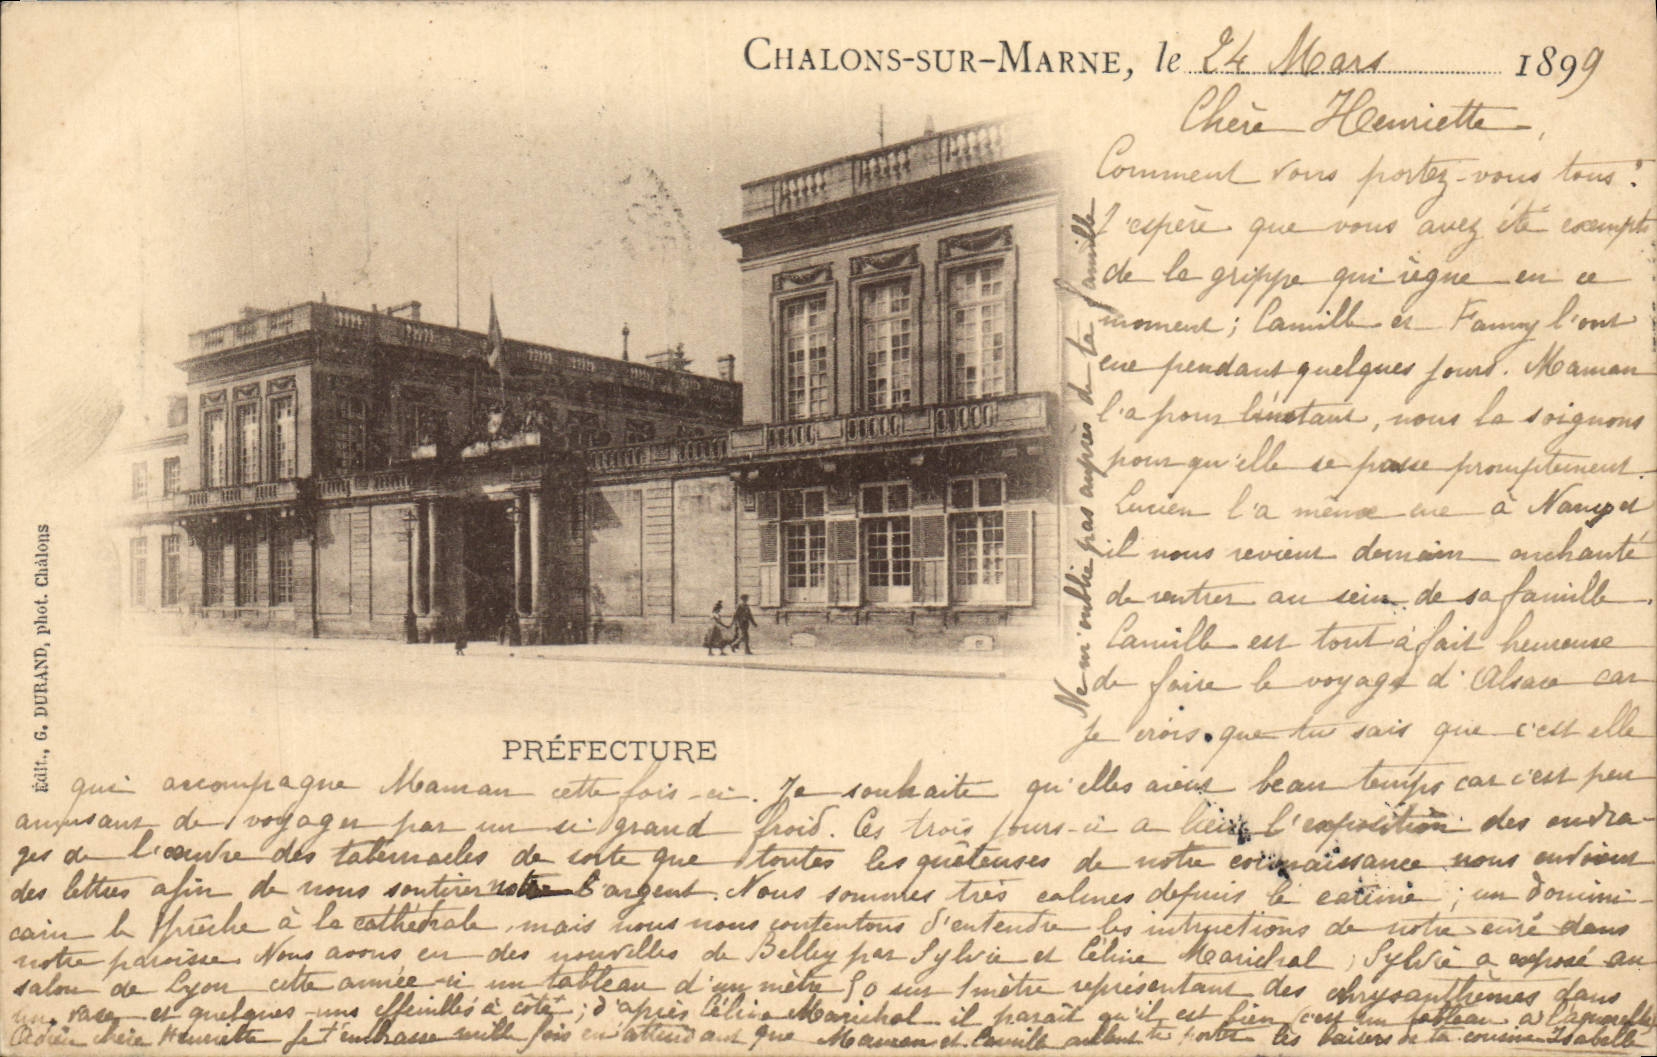 CHALONS-SUR-MARNE, le 24 Mars 1899
Chère Henriette,
Comment vous portez-vous tous?
J'espère que vous avez été exempts
de la grippe qui règne en ce
moment; Camille et Fanny l'ont
eue pendant quelques jours. Maman
l'a pour l'instant, nous la soignons
pour qu'elle se passe promptement.
Lucien l'a même eue à Nancy et
il nous revient demain enchanté
de rentrer au sein de sa famille.
Camille est tout à fait heureuse
de faire le voyage d'Alsace car
je crois que tu sais que c'est elle
qui accompagne Maman cette fois-ci. Je souhaite qu'elles aient beau temps car c'est peu
amusant de voyager par un si grand froid. Ces trois jours-ci a lieu l'exposition des ouvra-
ges de l'œuvre des tabernacles de sorte que toutes les quêteuses de notre connaissance nous envoient
des lettres afin de nous soutirer notre argent. Nous sommes très calmes depuis le carême; un domini-
cain le prêche à la cathédrale, mais nous nous contentons d'entendre les instructions de notre curé dans
notre paroisse. Nous avons eu des nouvelles de Belley par Sylvie et Céline Marichal; Sylvie a exposé au
salon de Lyon cette année-ci un tableau d'un mètre 50 sur 1 mètre représentant des chrysanthèmes dans
un vase et quelques-uns effeuillés à côté; d'après Céline Marichal il paraît qu'il est bien (c'est un tableau à l'aquarelle)
Adieu chère Henriette je t'embrasse mille fois en attendant que Maman et Camille aillent te porter les baisers de ta cousine Isabelle
Ne m'oublie pas auprès de ta famille
PRÉFECTURE
Édit., G. DURAND, phot. Châlons